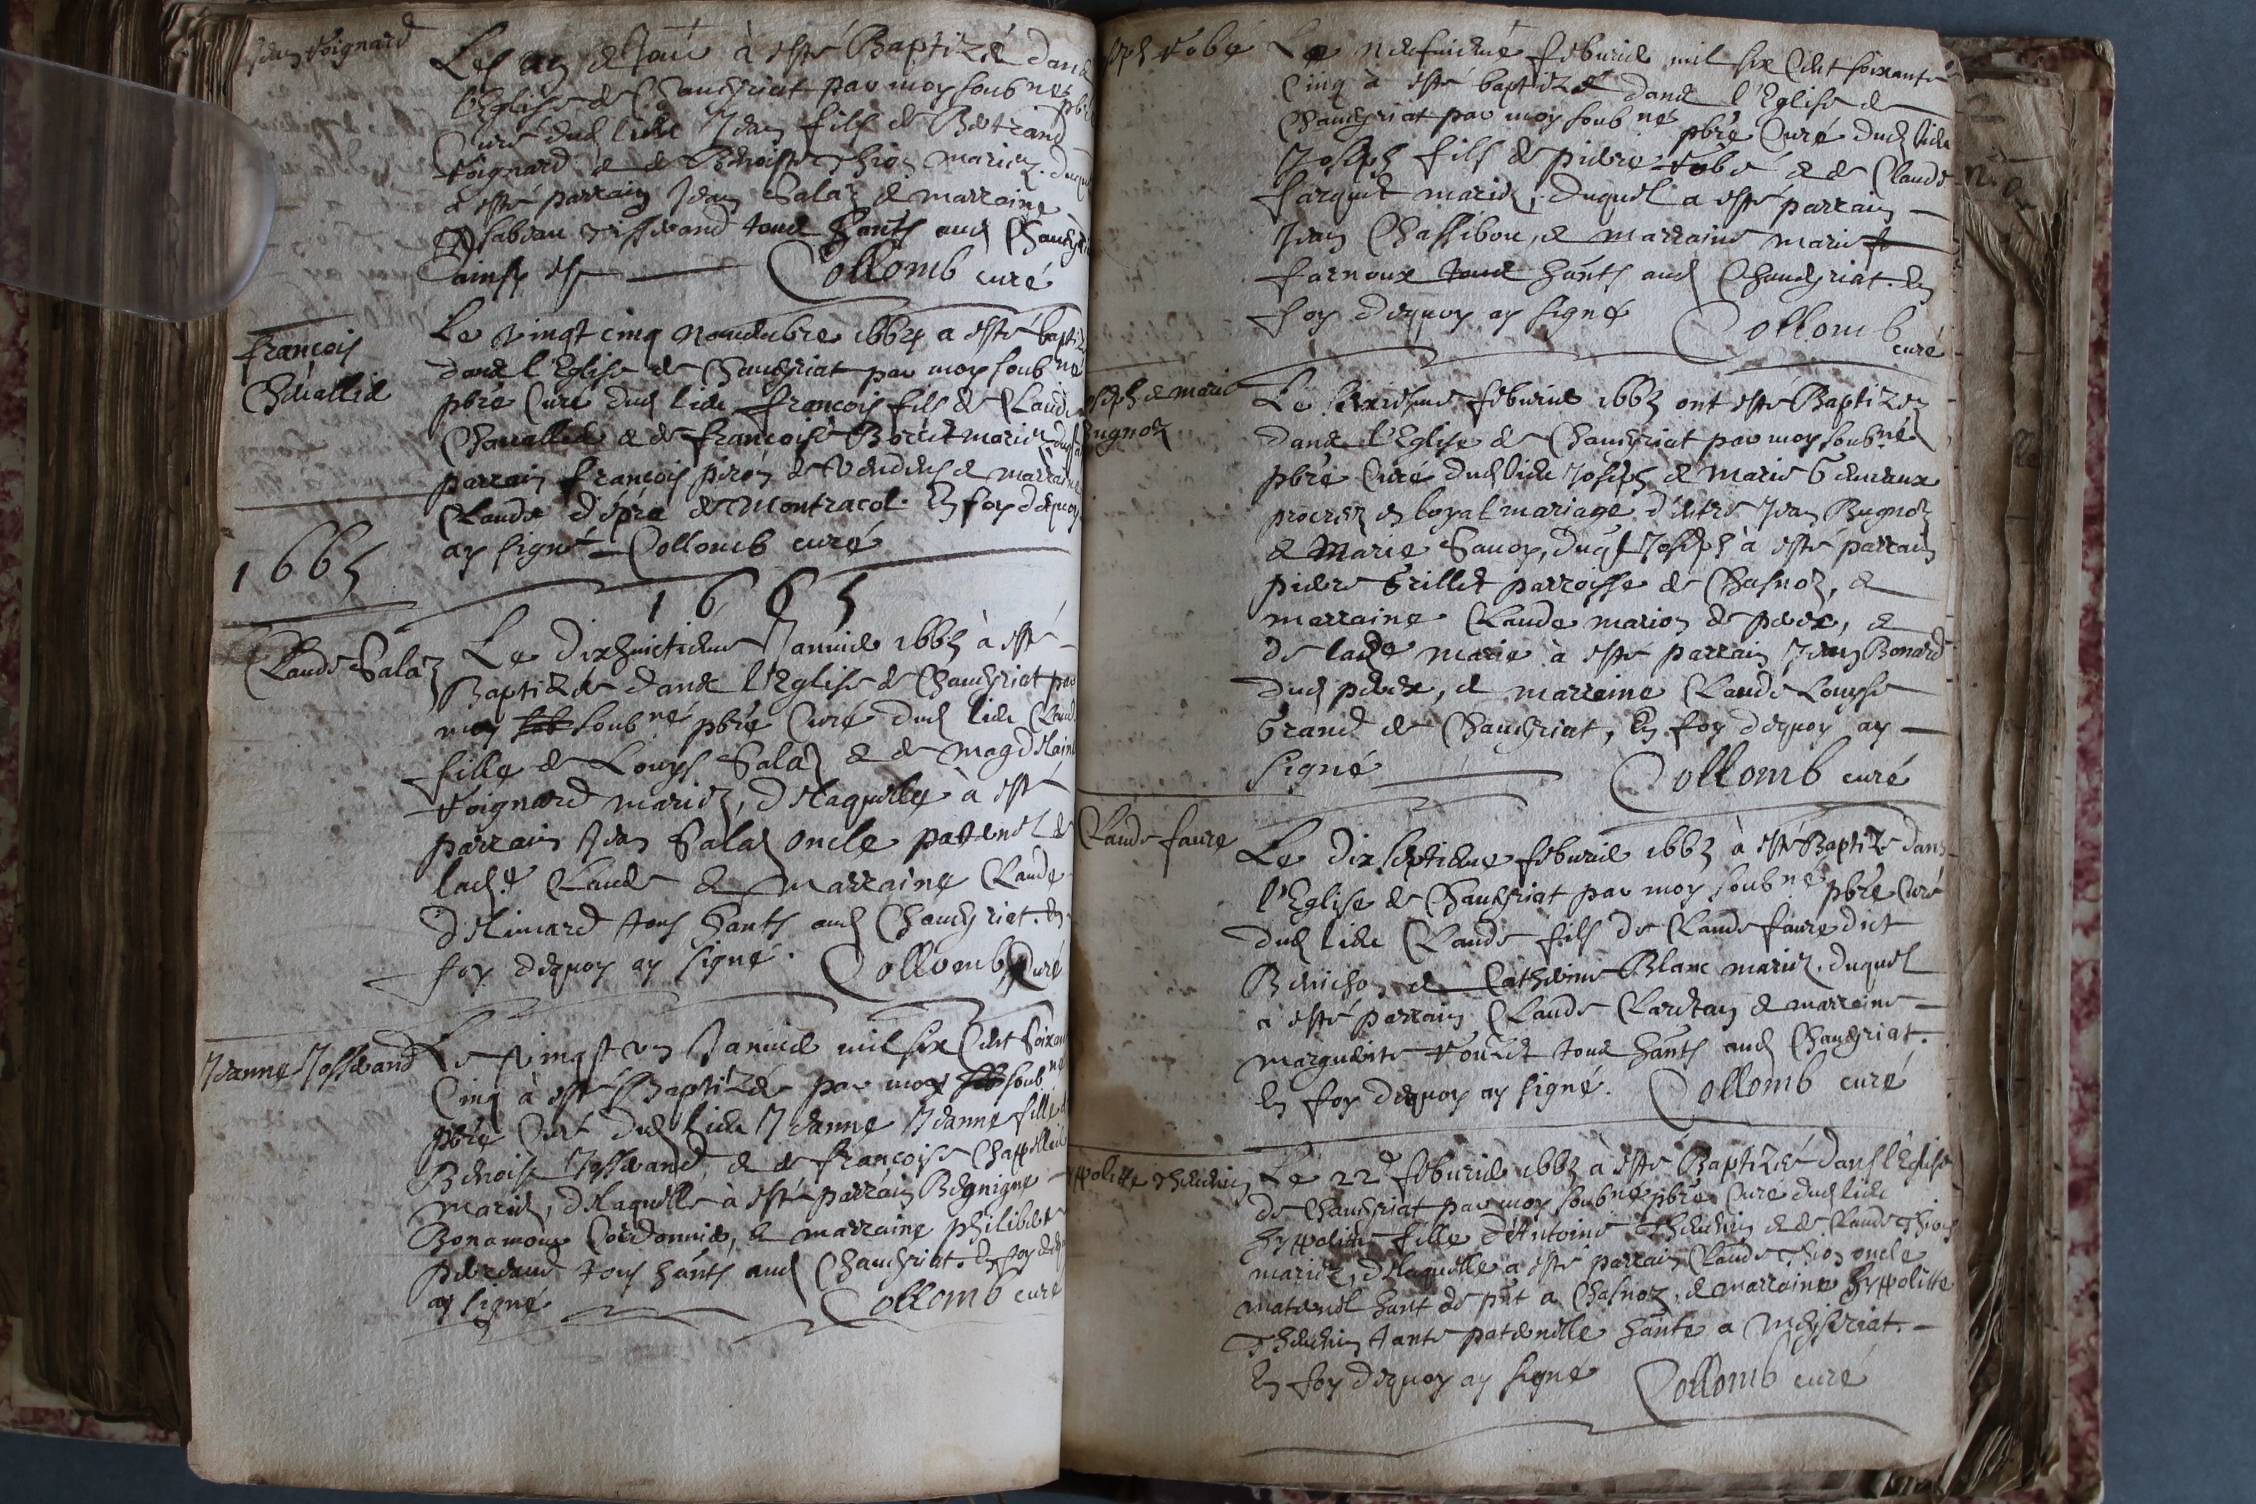 Jean Voignard
Les an et jour à esté Baptizé dans
l'Eglise de Chaveyriat par moy soubné pbre
Curé dud lieu Jean fils de Bertrand
Voignard & de Benoiste Thion mariez. duquel
à esté parrain Jean Salaz & marraine
Ysabeau tous hants aud Chaveyriat
ainsy est Collomb curé
François
Chevallier
Le vingt cinq Novembre 1664 a esté baptizé
dans l'Eglise de Chaveyriat par moy soubné
pbre Curé dud lieu François fils de Claude
Chevallier & de Françoise Borcet mariez
parrain François péron de Vendens & marraine
Claude dépra de Montracol. En foy dequoy
ay signé Collomb curé
1665
1665
Claude Salaz
Le Dixhuictieme Janvier 1665 à esté
Baptizée dans l'Eglise de Chaveyriat par
moy soubné pbre Curé dud lieu Claude
fille de Louys Salaz & de Magdelaine
Voignard mariez, delaquelle à esté
parrain Jean Salaz oncle paternel de
lad.e Claude & marraine Claude
délimard tous hants aud Chaveyriat. En
foy dequoy ay signé. Collomb Curé
Jeanne Josserand
Le vingt un Janvier mil six Cent Soixante
Cinq à esté Baptizée par moy soubné
pbre Curé dud lieu Jeanne Jeanne fille de
Benoist Josserand & de Françoise Chappellier
mariez, delaquelle à esté parrain Begnigne
Bonamour Cordonnier, & marraine philiberte
tous hants aud Chaveyriat. En foy dequoy
ay signé Collomb curé
Joseph Vobé
Le Neufvieme febvrier mil six Cent soixante
Cinq à esté baptizé dans l'Eglise de
Chaveyriat par moy soubné pbre Curé dud lieu
Joseph fils de pierre Vobé & de Claude
farguet mariez. duquel a esté parrain
Jean Chassibou, & marraine marie
farnoux tous hants aud Chaveyriat. En
foy dequoy ay signé Collomb
curé
Joseph & marie
Bugnoz
Le febvrier 1665 ont esté Baptizez
dans l'Eglise de Chaveyriat par moy soubné
pbre Curé dud lieu Joseph & Marie Gemeaux
procreez en loyal mariage d'entre Jean Bugnoz
& Marie Savoy, duql Joseph à esté parrain
pierre Grillet parroisse de Chasnoz, &
marraine Claude marion de perex, &
de lad.e marie à esté parrain Jean Bonard
dud perex, & marraine Claude Louyse
Grand de Chaveyriat, En foy dequoy ay
signé Collomb curé
Claude faure
Le Dixseptieme febvrier 1665 à esté Baptizé dans
l'Eglise de Chaveyriat par moy soubné pbre Curé
dud lieu Claude fils de Claude faure dict
Benichon & Catherine Blanc mariez. duquel
à esté parrain Claude Cardtan & marraine
marguerite tous hants aud Chaveyriat.
En foy dequoy ay signé. Collomb curé
hyppolitte Thevenin
Le 22e febvrier 1665 à esté Baptizée dans l'Eglise
de Chaveyriat par moy soubné pbre Curé dud lieu
hyppolitte fille d'Antoine Thevenin & de Claude Thion
mariez, delaquelle a esté parrain Claude Thion oncle
maternel hant de pnt a Chasnoz, & marraine hyppolitte
Thevenin tante paternelle hante a Mezeriat.
En foy dequoy ay signé Collomb curé